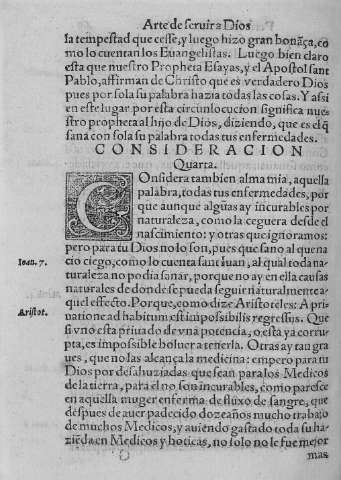 Arte de seruir a Dios
la tempestad que cesse, y luego hizo gran bonãça, co
mo lo cuentan los Euangelistas. Luego bien claro
esta que nuestro Propheta Esayas, y el Apostol sant
Pablo, affirman de Christo que es verdadero Dios
pues por sola su palabra hazia todas las cosas. Y assi
en este lugar por esta circunlocucion significa nues
tro propheta al hijo de Dios, diziendo, que es el q̃
sana con sola su palabra todas tus enfermedades.
CONSIDERACION
Quarta.
COnsidera tambien alma mia, aquella
palabra, todas tus enfermedades, por
que aunque algũas ay incurables por
naturaleza, como la ceguera desde el
nascimiento: y otras que ignoramos:
pero para tu Dios no lo son, pues que sano al que na
Ioan. 7.
cio ciego, como lo cuenta sant Iuan, al qual toda na
turaleza no podia sanar, porque no ay en ella causas
naturales de donde se pueda seguir naturalmente a
quel effecto. Porque, como dize Aristoteles: A pri
Aristot.
uatione ad habitum est impossibilis regressus. Que
si vno esta priuado de vna potencia, o esta ya corru
pta, es impossible boluer a tenerla. Otras ay tan gra
ues, que no las alcança la medicina: empero para tu
Dios por desahuziadas que sean para los Medicos
de la tierra, para el no son incurables, como paresce
en aquella muger enferma de fluxo de sangre, que
despues de auer padecido doze años mucho trabajo
de muchos Medicos, y auiendo gastado toda su ha
ziẽda en Medicos y boticas, no solo no le fue mejor
mas